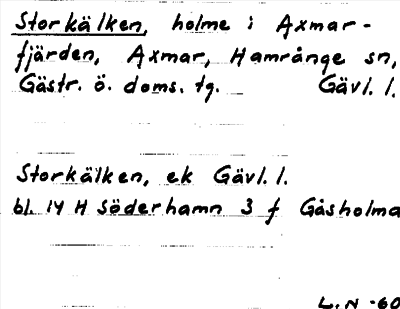 Storkälken, holme i Axmar-
fjärden, Axmar, Hamrånge sn,
Gästr. ö. doms. tg. Gävl. l.
Storkälken, ek Gävl. l.
bl. 14 H Söderhamn 3 f Gåsholma
L. N -60